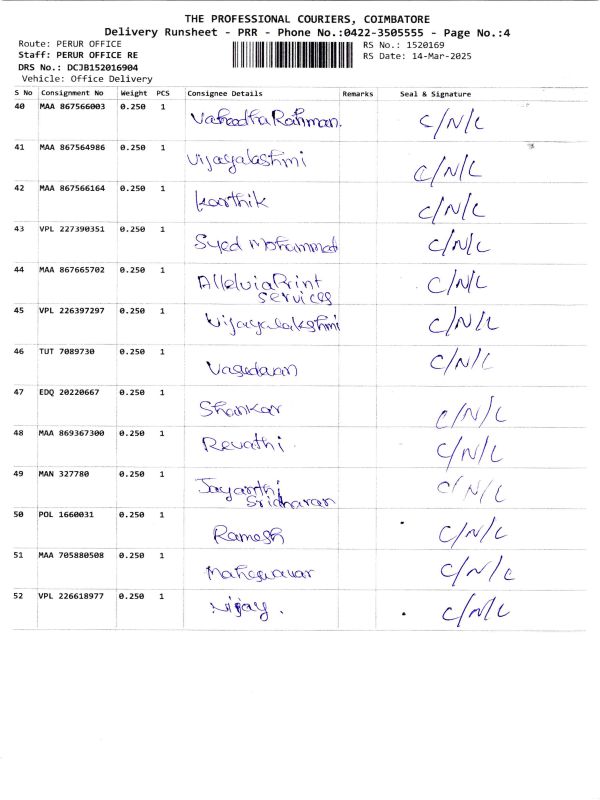 THE PROFESSIONAL COURIERS, COIMBATORE
Delivery Runsheet - PRR - Phone No.:0422-3505555 - Page No.:4
Route: PERUR OFFICE
RS No.: 1520169
Staff: PERUR OFFICE RE
RS Date: 14-Mar-2025
DRS No.: DCJB152016904
Vehicle: Office Delivery
S No Consignment No Weight PCS Consignee Details Remarks Seal & Signature
40 MAA 867566003 0.250 1 Vaheedha Rahman. C/N/L
41 MAA 867564986 1 0.250 1 Vijayalashmi C/N/L
42 MAA 867566164 0.250 1 Karthik C/N/L
43 VPL 227390351 0.250 1 Syed Mohammad C/N/L
44 MAA 867665702 0.250 1 Alleluia Print C/N/L
services
45 VPL 226397297 0.250 1 Vijayalakshmi C/N/L
46 TUT 7089730 0.250 1 C/N/L
47 EDQ 20220667 0.250 1 Shankar C/N/L
48 MAA 869367300 0.250 1 Revathi C/N/L
49 MAN 327780 0.250 1 Jayanthi C/N/L
Sridharan
50 POL 1660031 0.250 1 Ramesh C/N/L
51 MAA 705880508 0.250 1 C/N/L
52 VPL 226618977 0.250 1 Vijay. C/N/L